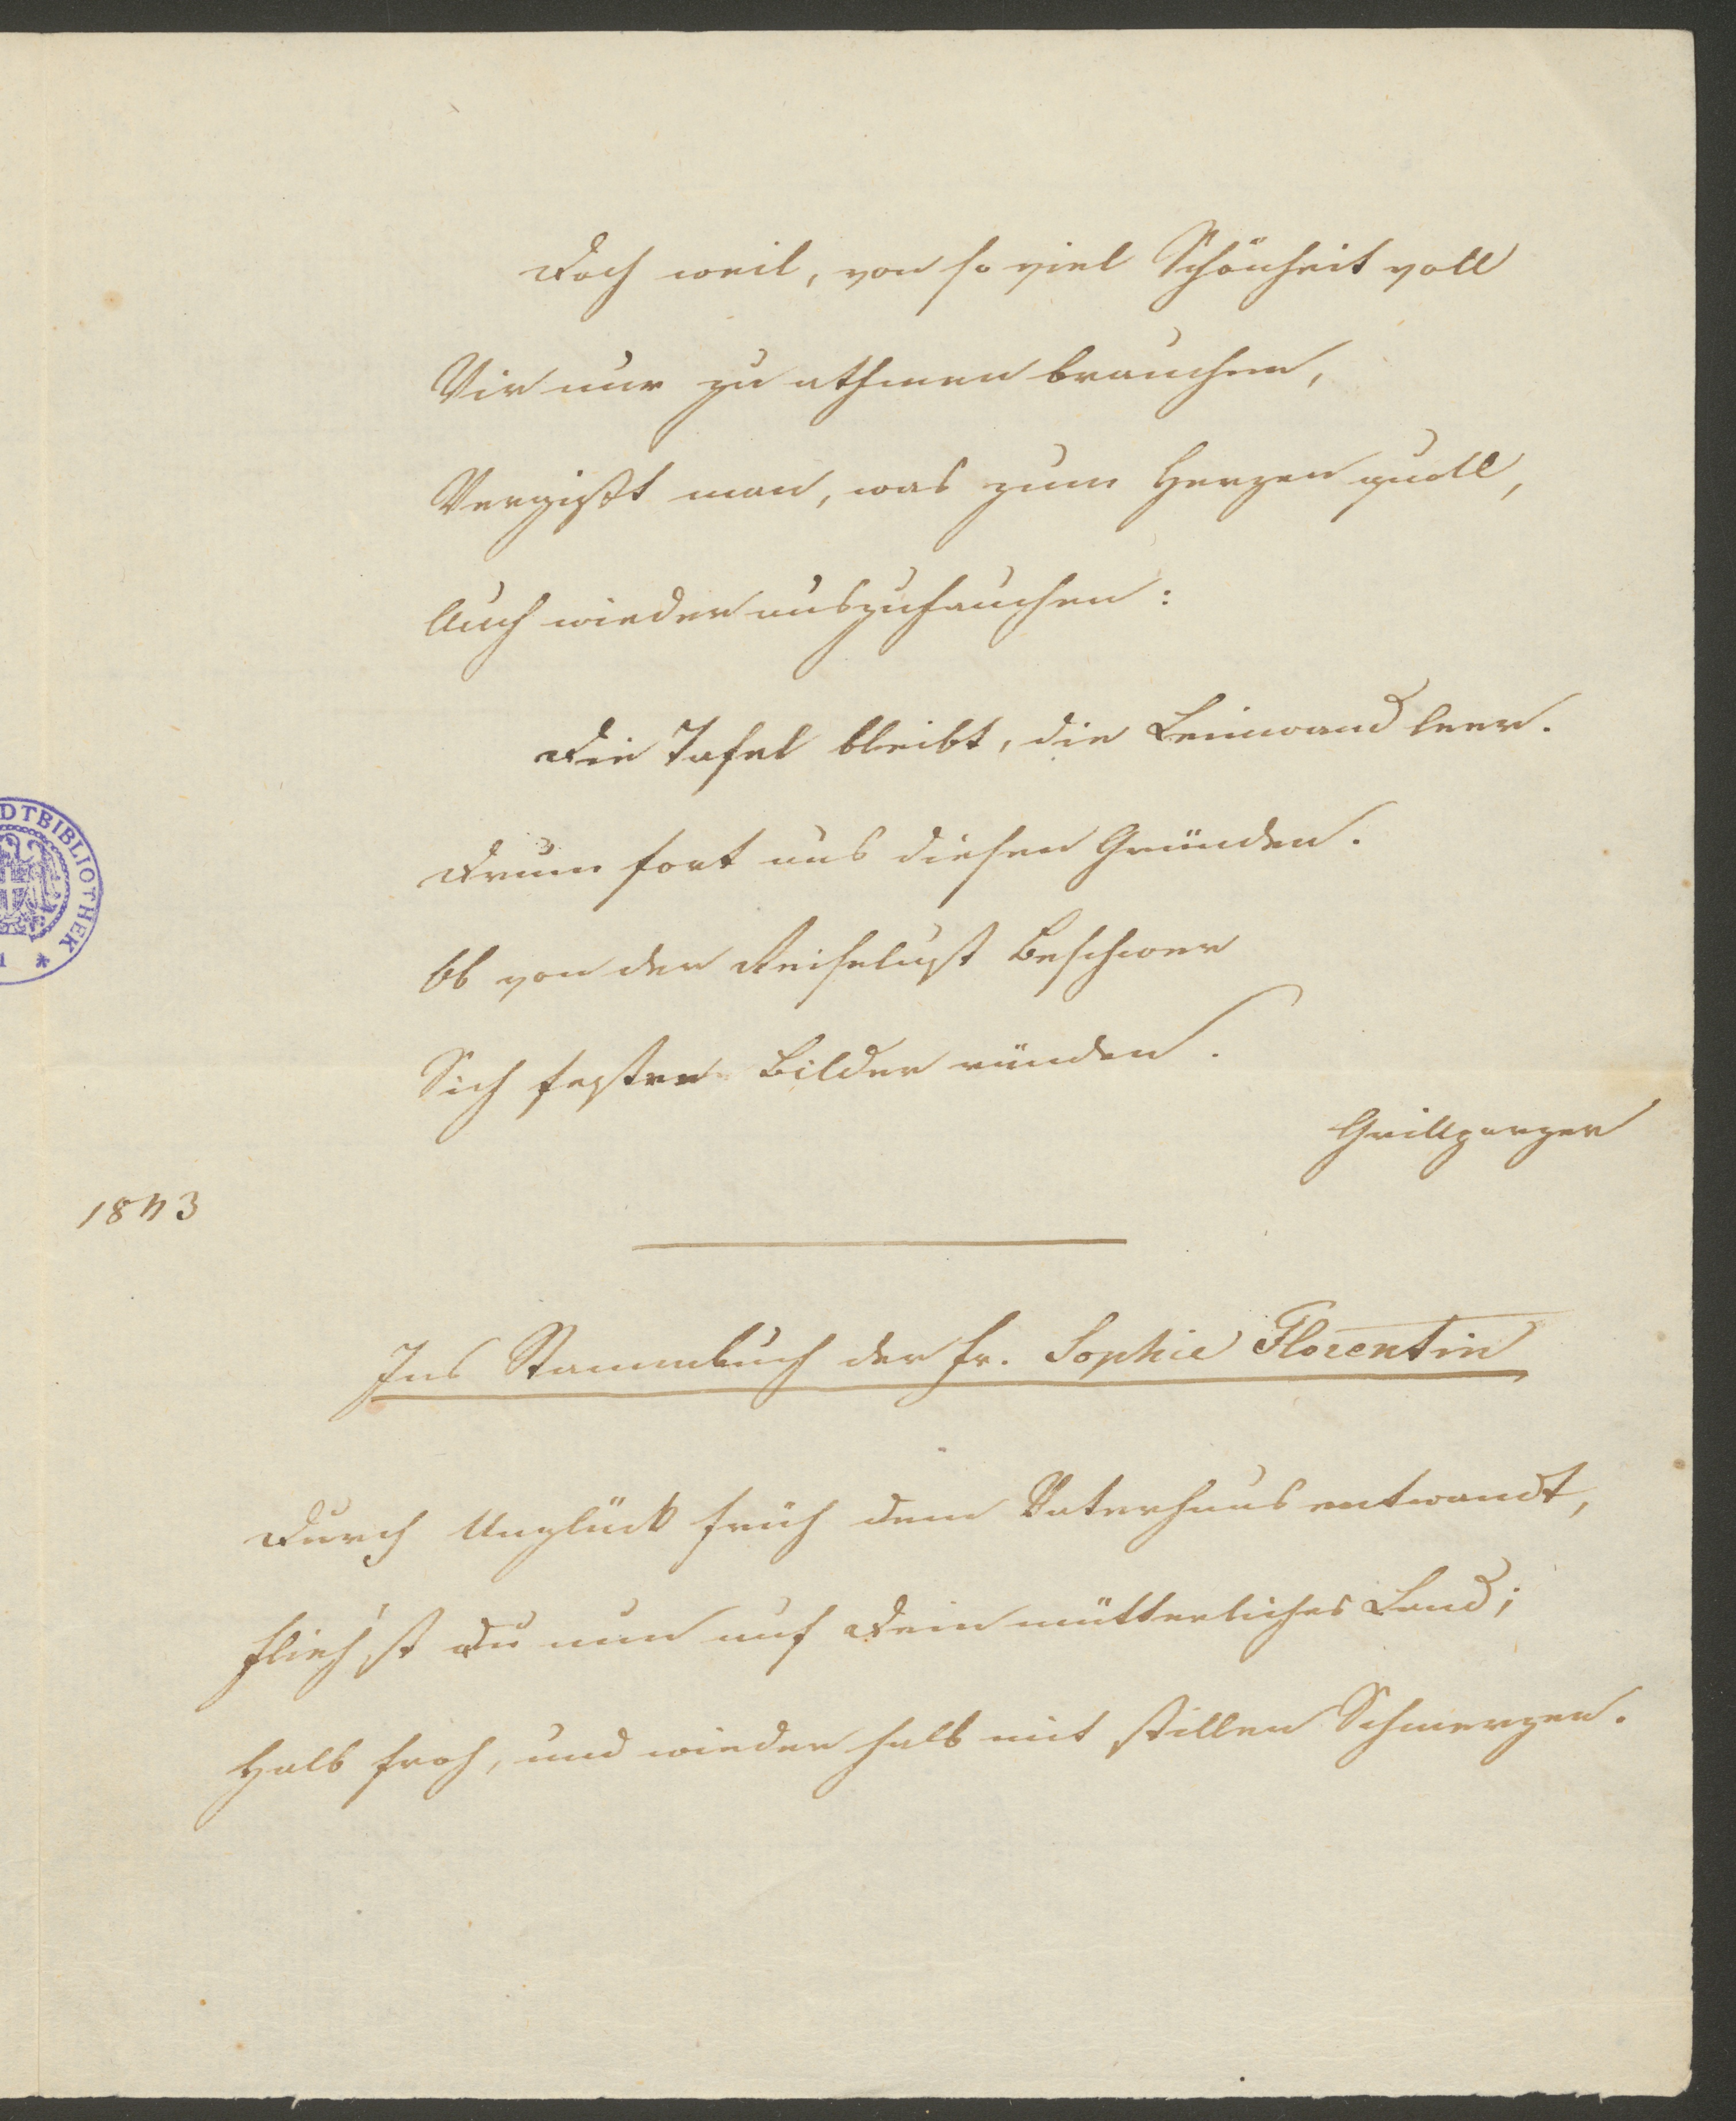 Doch weil, von so viel Schönheit voll
Wir nur zu athmen brauchen,
Vergißt man, was zum Herzen quoll,
Auch wieder auszuhauchen:
Die Tafel bleibt, die Leinwand leer.
Drum fort aus diesen Gründen.
Ob von der Reiselust Beschwer
Sich festre Bilder ründen.
Grillparzer
1843
Ins Stammbuch der Fr. Sophie Florentin
Durch Unglück früh dem Vaterhaus entwandt,
Flieh'st Du nun auf Dein mütterliches Land;
Halb froh, und wieder halb mit stillen Schmerzen.
DTBIBLIOTHEK